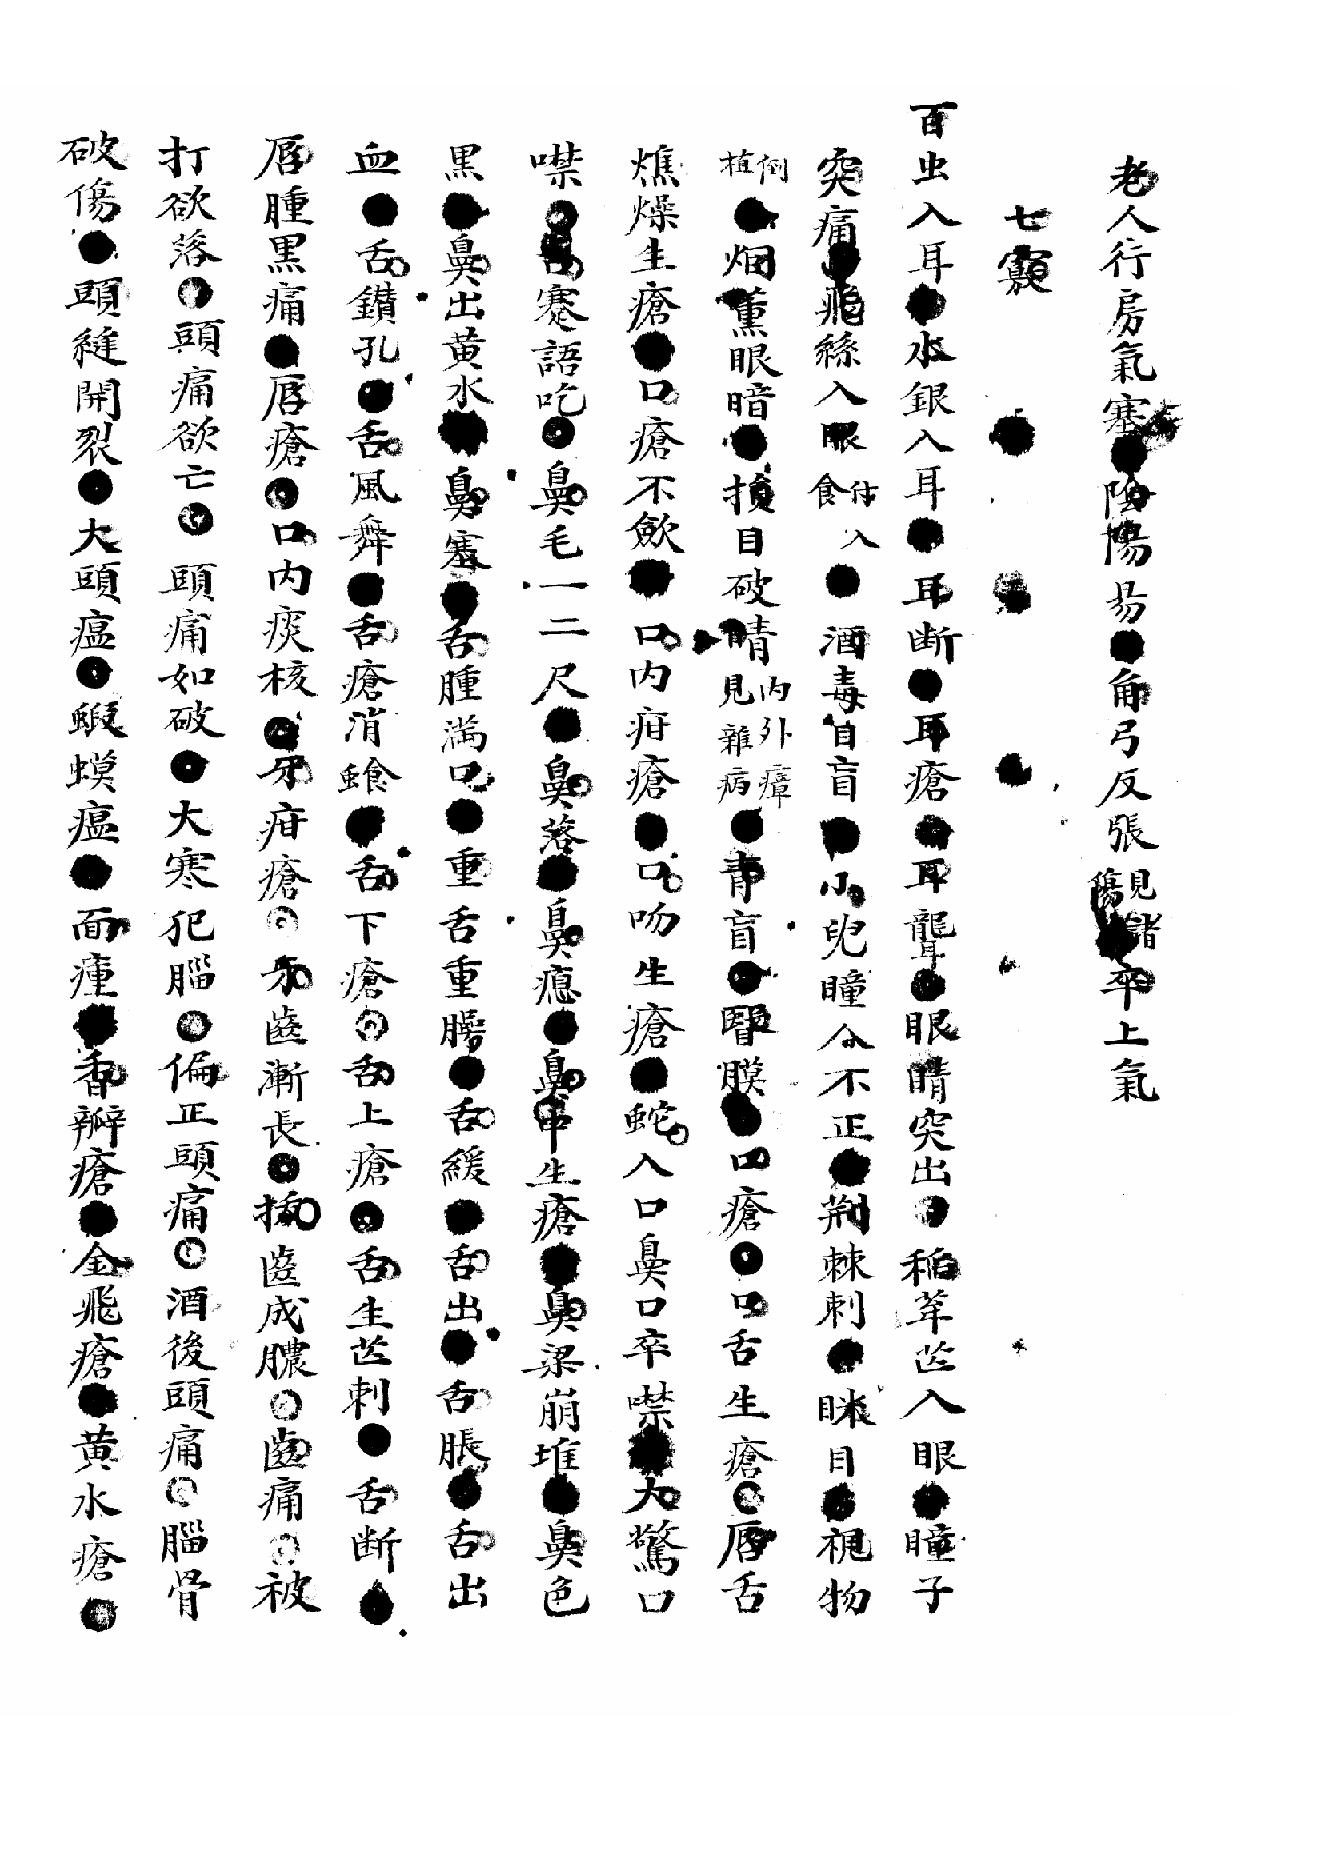 老人行房氣塞●陰陽易●角弓反張見諸傷●卒上氣
七竅
百虫入耳●水銀入耳●耳断●耳瘡●耳聾●眼睛突出●稲芒入眼●瞳子
突痛●飛絲入眼付入食●酒毒目盲●小兒瞳人不正●荆棘刺●眯目●視物
倒植●烟薰眼暗●損目破睛内外瘴見雜病●青盲●瞖膜●口瘡●口舌生瘡●唇舌
燋燥生瘡●口瘡不歛●口内疳瘡●口吻生瘡●蛇入口鼻口卒噤●大驚口
噤●舌蹇語吃●鼻毛一二尺●鼻落●鼻瘜●鼻中生瘡●鼻梁崩堆●鼻色
黑●鼻出黄水●鼻塞●舌腫満口●重舌重腭●舌緩●舌出●舌脹●舌出
血●舌鑽孔●舌風舞●舌瘡消蝕●舌下瘡●舌上瘡●舌生芒刺●舌断●
唇腫黑痛●唇瘡●口内痰核●牙疳瘡●牙齒漸長●揷齒成膿●齒痛●被
打欲落●頭痛欲亡●頭痛如破●大寒犯腦●偏正頭痛●酒後頭痛●腦骨
破傷●頭縫開裂●大頭瘟●蝦蟆瘟●面瘇●香瓣瘡●金飛瘡●黄水瘡●